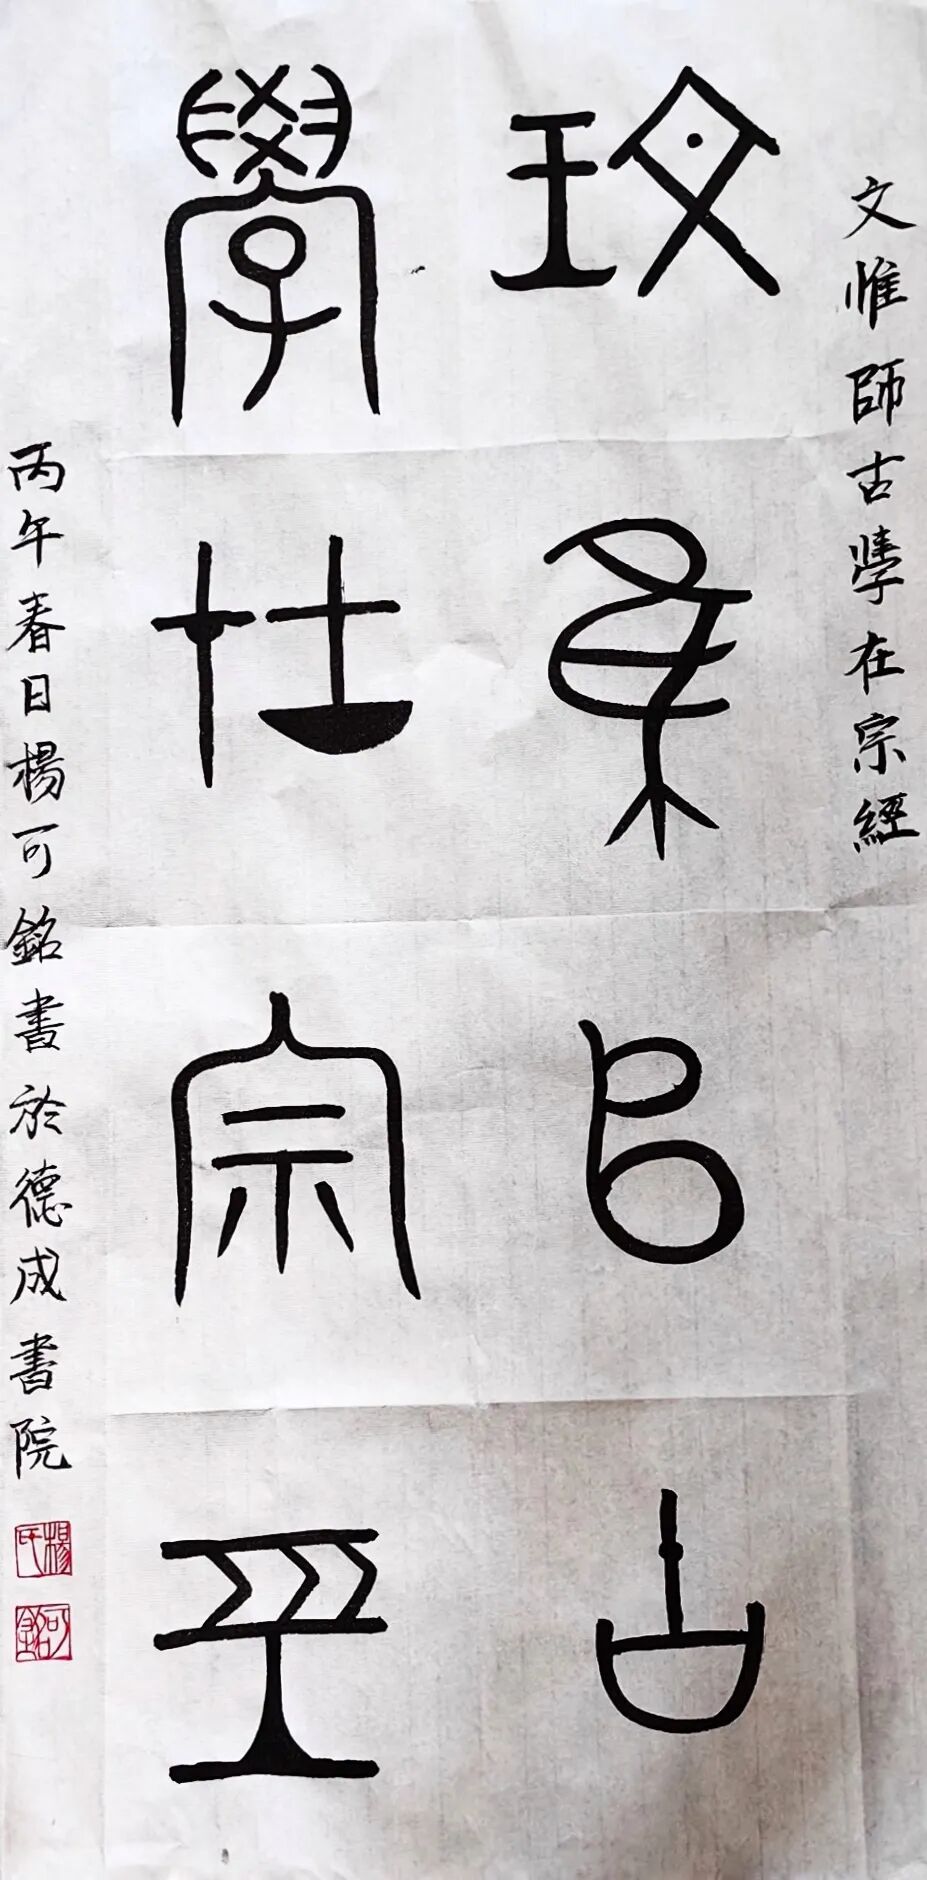 文惟師古學在宗經
玟隹𠂤古
學在宗巠
丙午春日楊可銘書於德成書院
楊氏
可銘